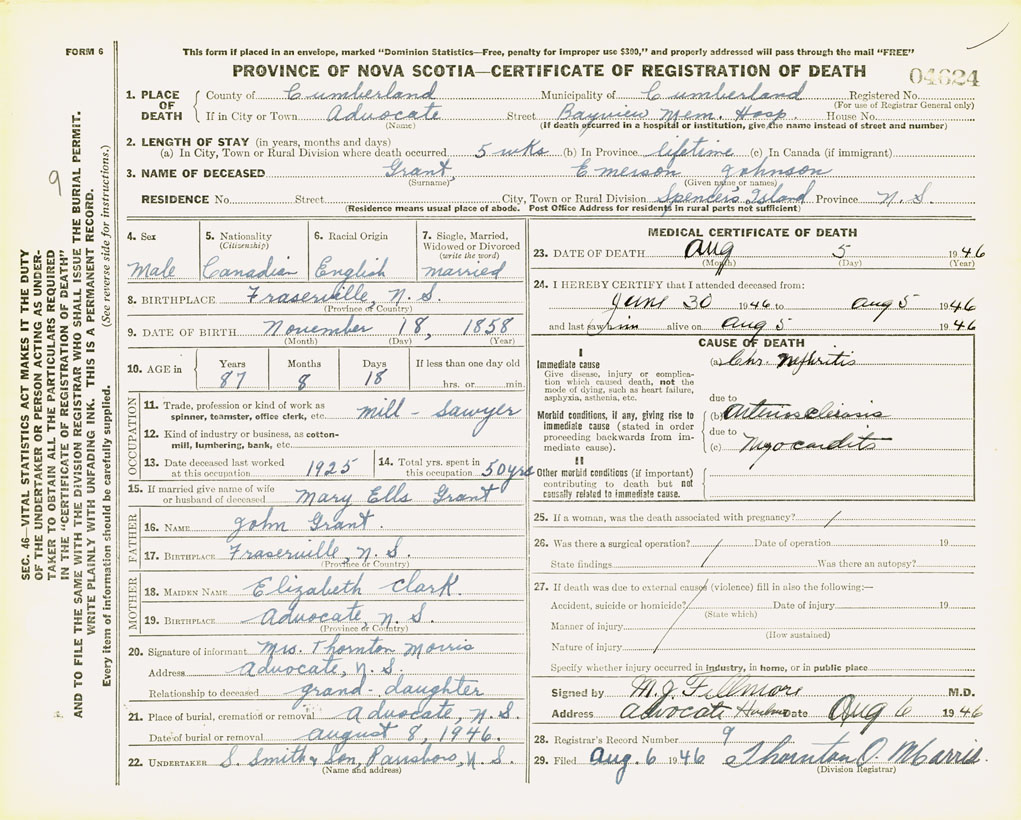 FORM 6
This form if placed in an envelope, marked "Dominion Statistics—Free, penalty for improper use $300," and properly addressed will pass through the mail "FREE"
PROVINCE OF NOVA SCOTIA—CERTIFICATE OF REGISTRATION OF DEATH 04624
1. PLACE OF DEATH County of Cumberland Municipality of Cumberland Registered No.
(For use of Registrar General only)
If in City or Town Advocate Street Bayview Mem. Hosp. House No.
(Name) (If death occurred in a hospital or institution, give the name instead of street and number)
2. LENGTH OF STAY (in years, months and days)
(a) In City, Town or Rural Division where death occurred 5 wks (b) In Province lifetime (c) In Canada (if immigrant)
3. NAME OF DECEASED Grant, Emerson Johnson
(Surname) (Given name or names)
RESIDENCE No. Street City, Town or Rural Division Spencer's Island Province N.S.
(Residence means usual place of abode. Post Office Address for residents in rural parts not sufficient)
4. Sex Male
5. Nationality (Citizenship) Canadian
6. Racial Origin English
7. Single, Married, Widowed or Divorced (write the word) married
8. BIRTHPLACE Fraserville, N.S.
(Province or Country)
9. DATE OF BIRTH November 18, 1858
(Month) (Day) (Year)
10. AGE in Years 87 Months 8 Days 18 If less than one day old hrs. or min.
OCCUPATION
11. Trade, profession or kind of work as spinner, teamster, office clerk, etc. mill-sawyer
12. Kind of industry or business, as cotton-mill, lumbering, bank, etc.
13. Date deceased last worked at this occupation 1925
14. Total yrs. spent in this occupation 50 yrs
15. If married give name of wife or husband of deceased Mary Ells Grant
FATHER
16. NAME John Grant.
17. BIRTHPLACE Fraserville, N.S.
(Province or Country)
MOTHER
18. MAIDEN NAME Elizabeth Clark.
19. BIRTHPLACE Advocate, N.S.
(Province or Country)
20. Signature of informant Mrs. Thornton Morris
Address Advocate, N.S.
Relationship to deceased grand-daughter
21. Place of burial, cremation or removal Advocate, N.S.
Date of burial or removal August 8, 1946.
22. UNDERTAKER S. Smith & Son, Parrsboro, N.S.
(Name and address)
MEDICAL CERTIFICATE OF DEATH
23. DATE OF DEATH Aug 5 1946
(Month) (Day) (Year)
24. I HEREBY CERTIFY that I attended deceased from:
June 30 1946 to Aug 5 1946
and last saw him alive on Aug 5 1946
CAUSE OF DEATH
I
Immediate cause
Give disease, injury or complication which caused death, not the mode of dying, such as heart failure, asphyxia, asthenia, etc.
(a) Chr. Nephritis
due to
Morbid conditions, if any, giving rise to immediate cause (stated in order proceeding backwards from immediate cause).
(b) Arteriosclerosis
due to
(c) Myocarditis
II
Other morbid conditions (if important) contributing to death but not causally related to immediate cause.
25. If a woman, was the death associated with pregnancy? /
26. Was there a surgical operation? / Date of operation 19
State findings Was there an autopsy?
27. If death was due to external causes (violence) fill in also the following:—
Accident, suicide or homicide? Date of injury 19
(State which)
Manner of injury
(How sustained)
Nature of injury
Specify whether injury occurred in industry, in home, or in public place
Signed by M. J. Fillmore M.D.
Address Advocate Harbour Date Aug 6 1946
28. Registrar's Record Number 9
29. Filed Aug. 6 1946 Thornton O. Morris.
(Division Registrar)
SEC. 46—VITAL STATISTICS ACT MAKES IT THE DUTY
OF THE UNDERTAKER OR PERSON ACTING AS UNDER-
TAKER TO OBTAIN ALL THE PARTICULARS REQUIRED
IN THE "CERTIFICATE OF REGISTRATION OF DEATH"
AND TO FILE THE SAME WITH THE DIVISION REGISTRAR WHO SHALL ISSUE THE BURIAL PERMIT.
WRITE PLAINLY WITH UNFADING INK. THIS IS A PERMANENT RECORD.
Every item of information should be carefully supplied. (See reverse side for instructions.)
9